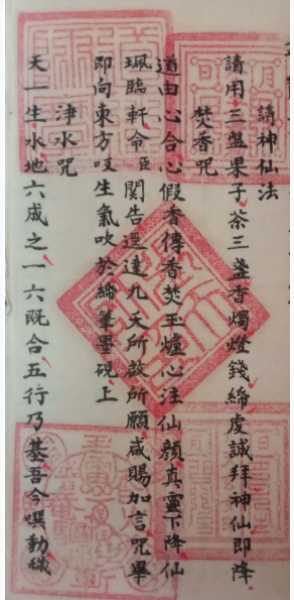 請神仙法
請用三盤果子茶三盞香燭燈錢締虔誠拜神仙即降
焚香咒
道由心合心假香傳香焚玉爐心注仙顏真靈下降仙
珮臨軒令臣関告逕達九天所啟所願咸賜加言咒畢
即向東方吸生氣吹於締筆墨硯上
淨水咒
天一生水地六成之一六既合五行乃基吾今噀動穢